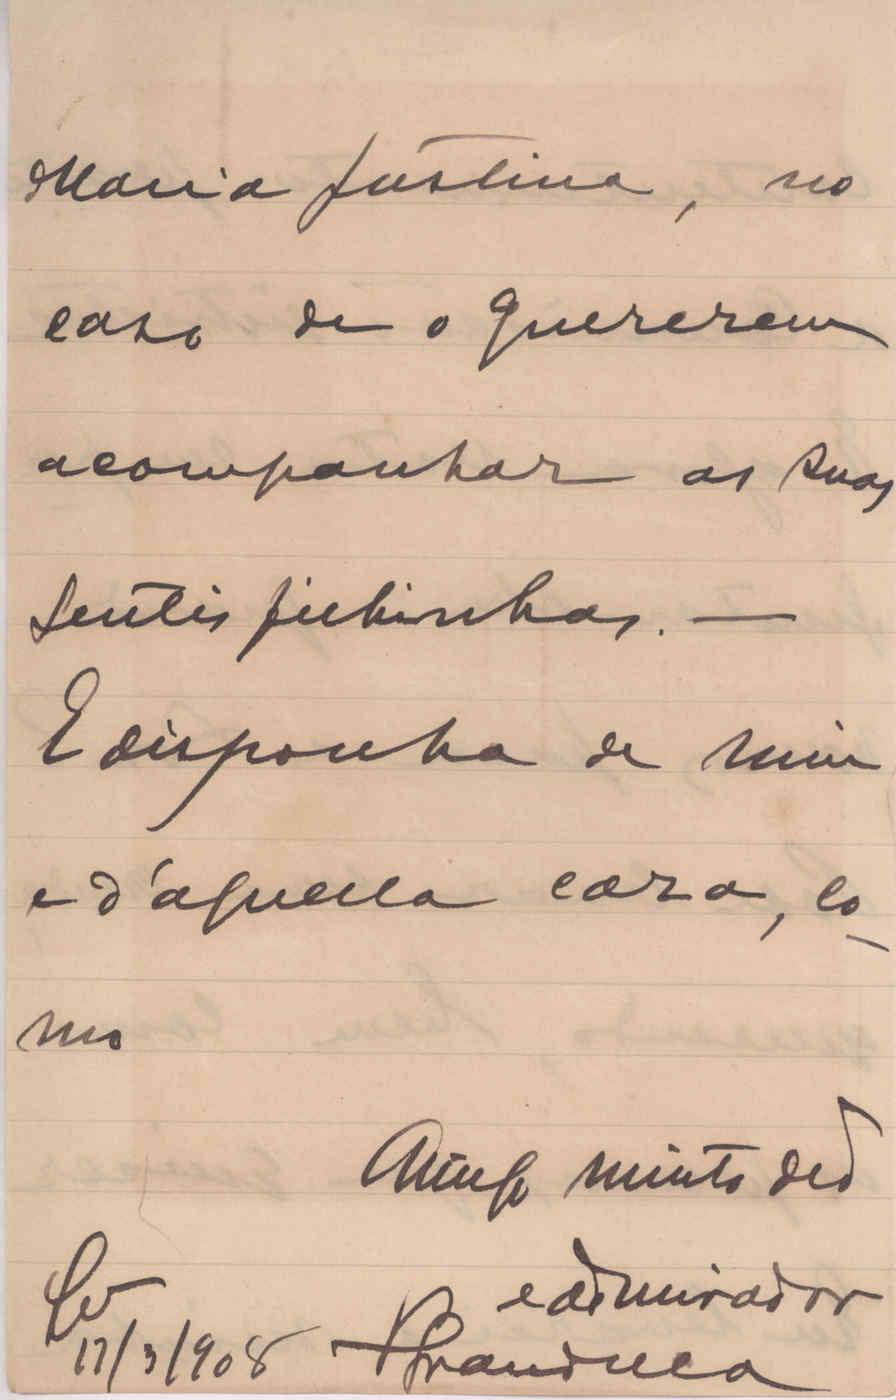 Maria Justina, no
caso de o quererem
acompanhar as suas
gentis filhinhas. —
E disponha de mim
e d'aquella casa, co-
mo
Amigo muito ded
e admirador
17/3/908